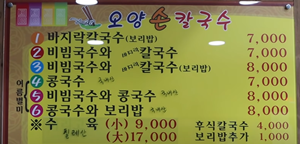 오양 손칼국수
1 바지락칼국수(보리밥) 7,000
2 비빔국수와 바지락 칼국수 7,000
3 비빔국수와 바지락 칼국수(보리밥) 8,000
여름별미
4 콩국수 7,000
5 비빔국수와 콩국수 8,000
6 콩국수와 보리밥 8,000
※수 육 (小) 9,000 후식칼국수 4,000
(大)17,000 보리밥추가 1,000